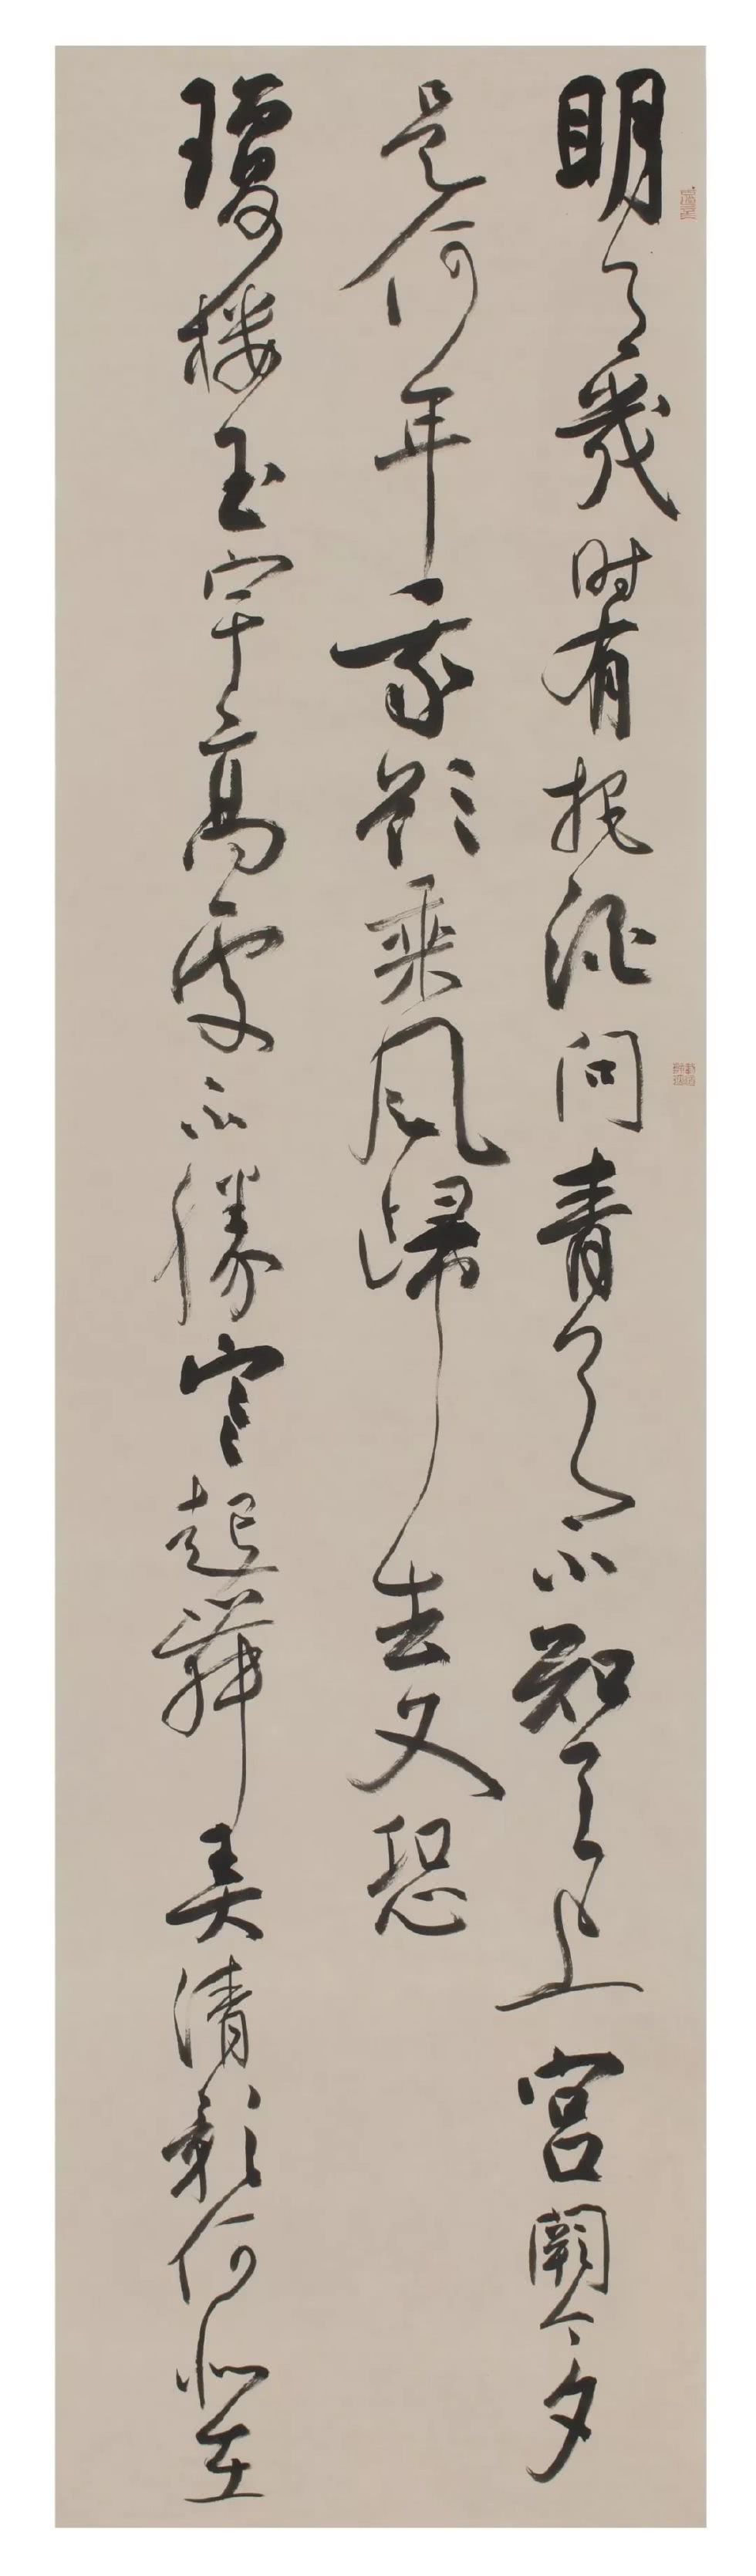 明月幾时有把酒问青天不知天上宫阙今夕
是何年我欲乘风歸去又恐
瓊楼玉宇高處不勝寒起舞弄清影何似在